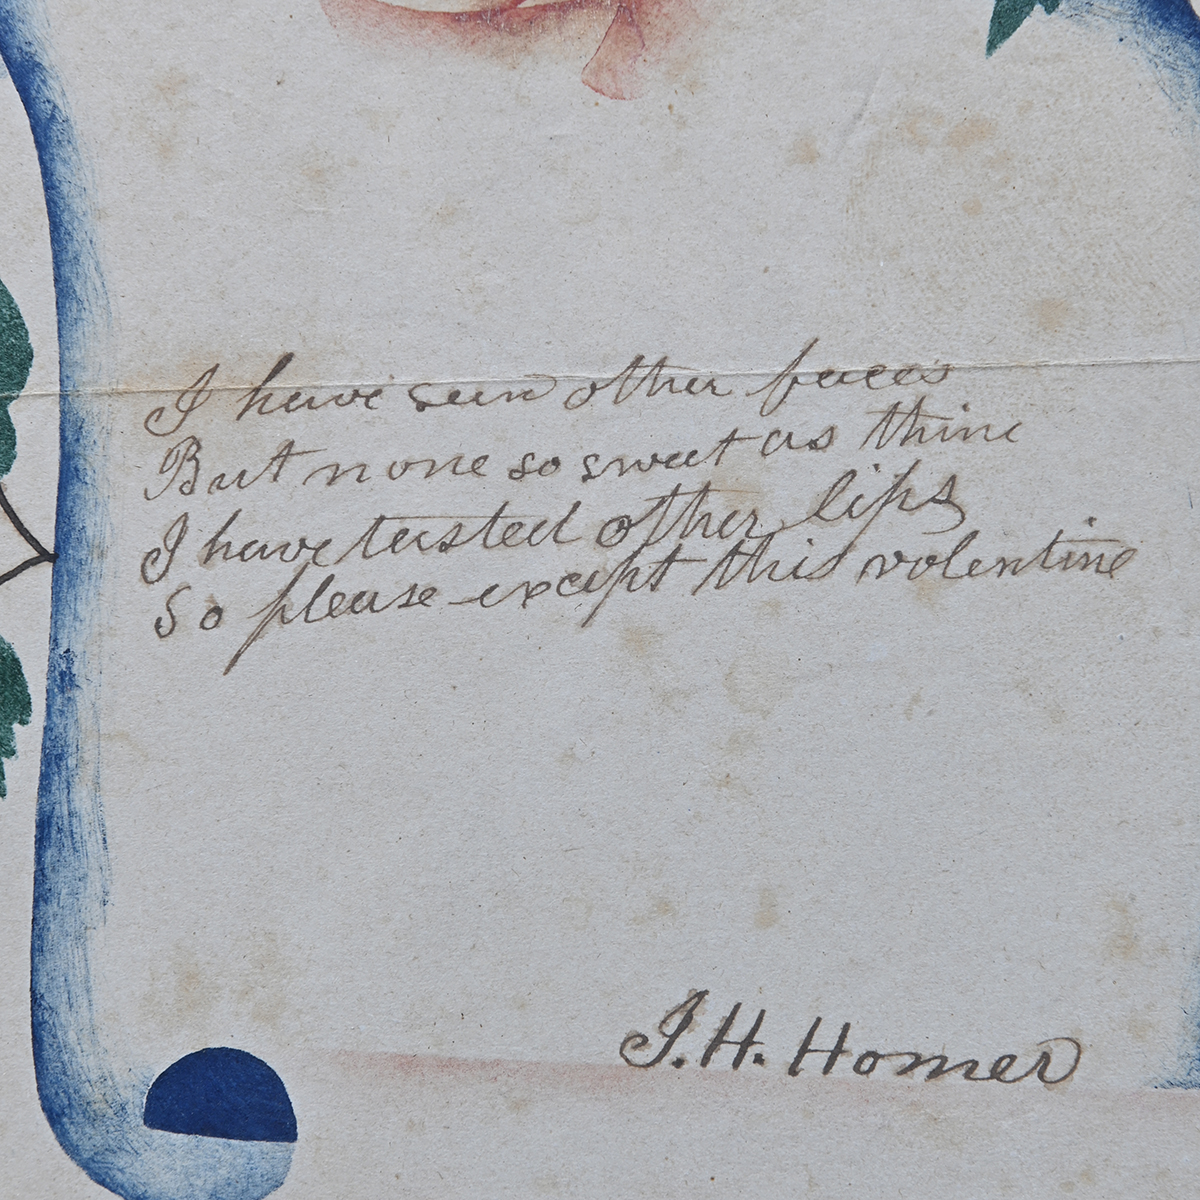 I have seen other faces
But none so sweet as thine
I have tasted other lips
So please except this volentine
J. H. Homer